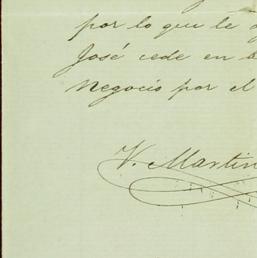 por lo que le
José cede en
Negocio por el
V. Martin